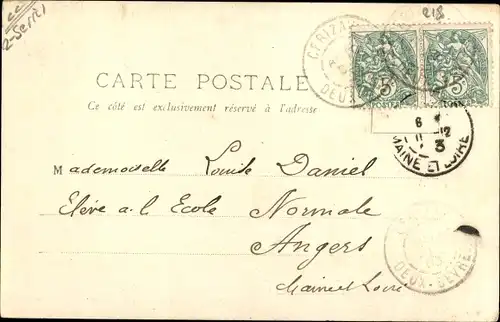 218
2-Serri
CERIZA
DEUX
5 5
CARTE POSTALE
Ce côté est exclusivement réservé à l'adresse
6
11-12
3
MAINE ET LOIRE
Mademoiselle Louise Daniel
Elève a l. Ecole Normale
Angers
Maine et Loire
DEUX-SEVRE